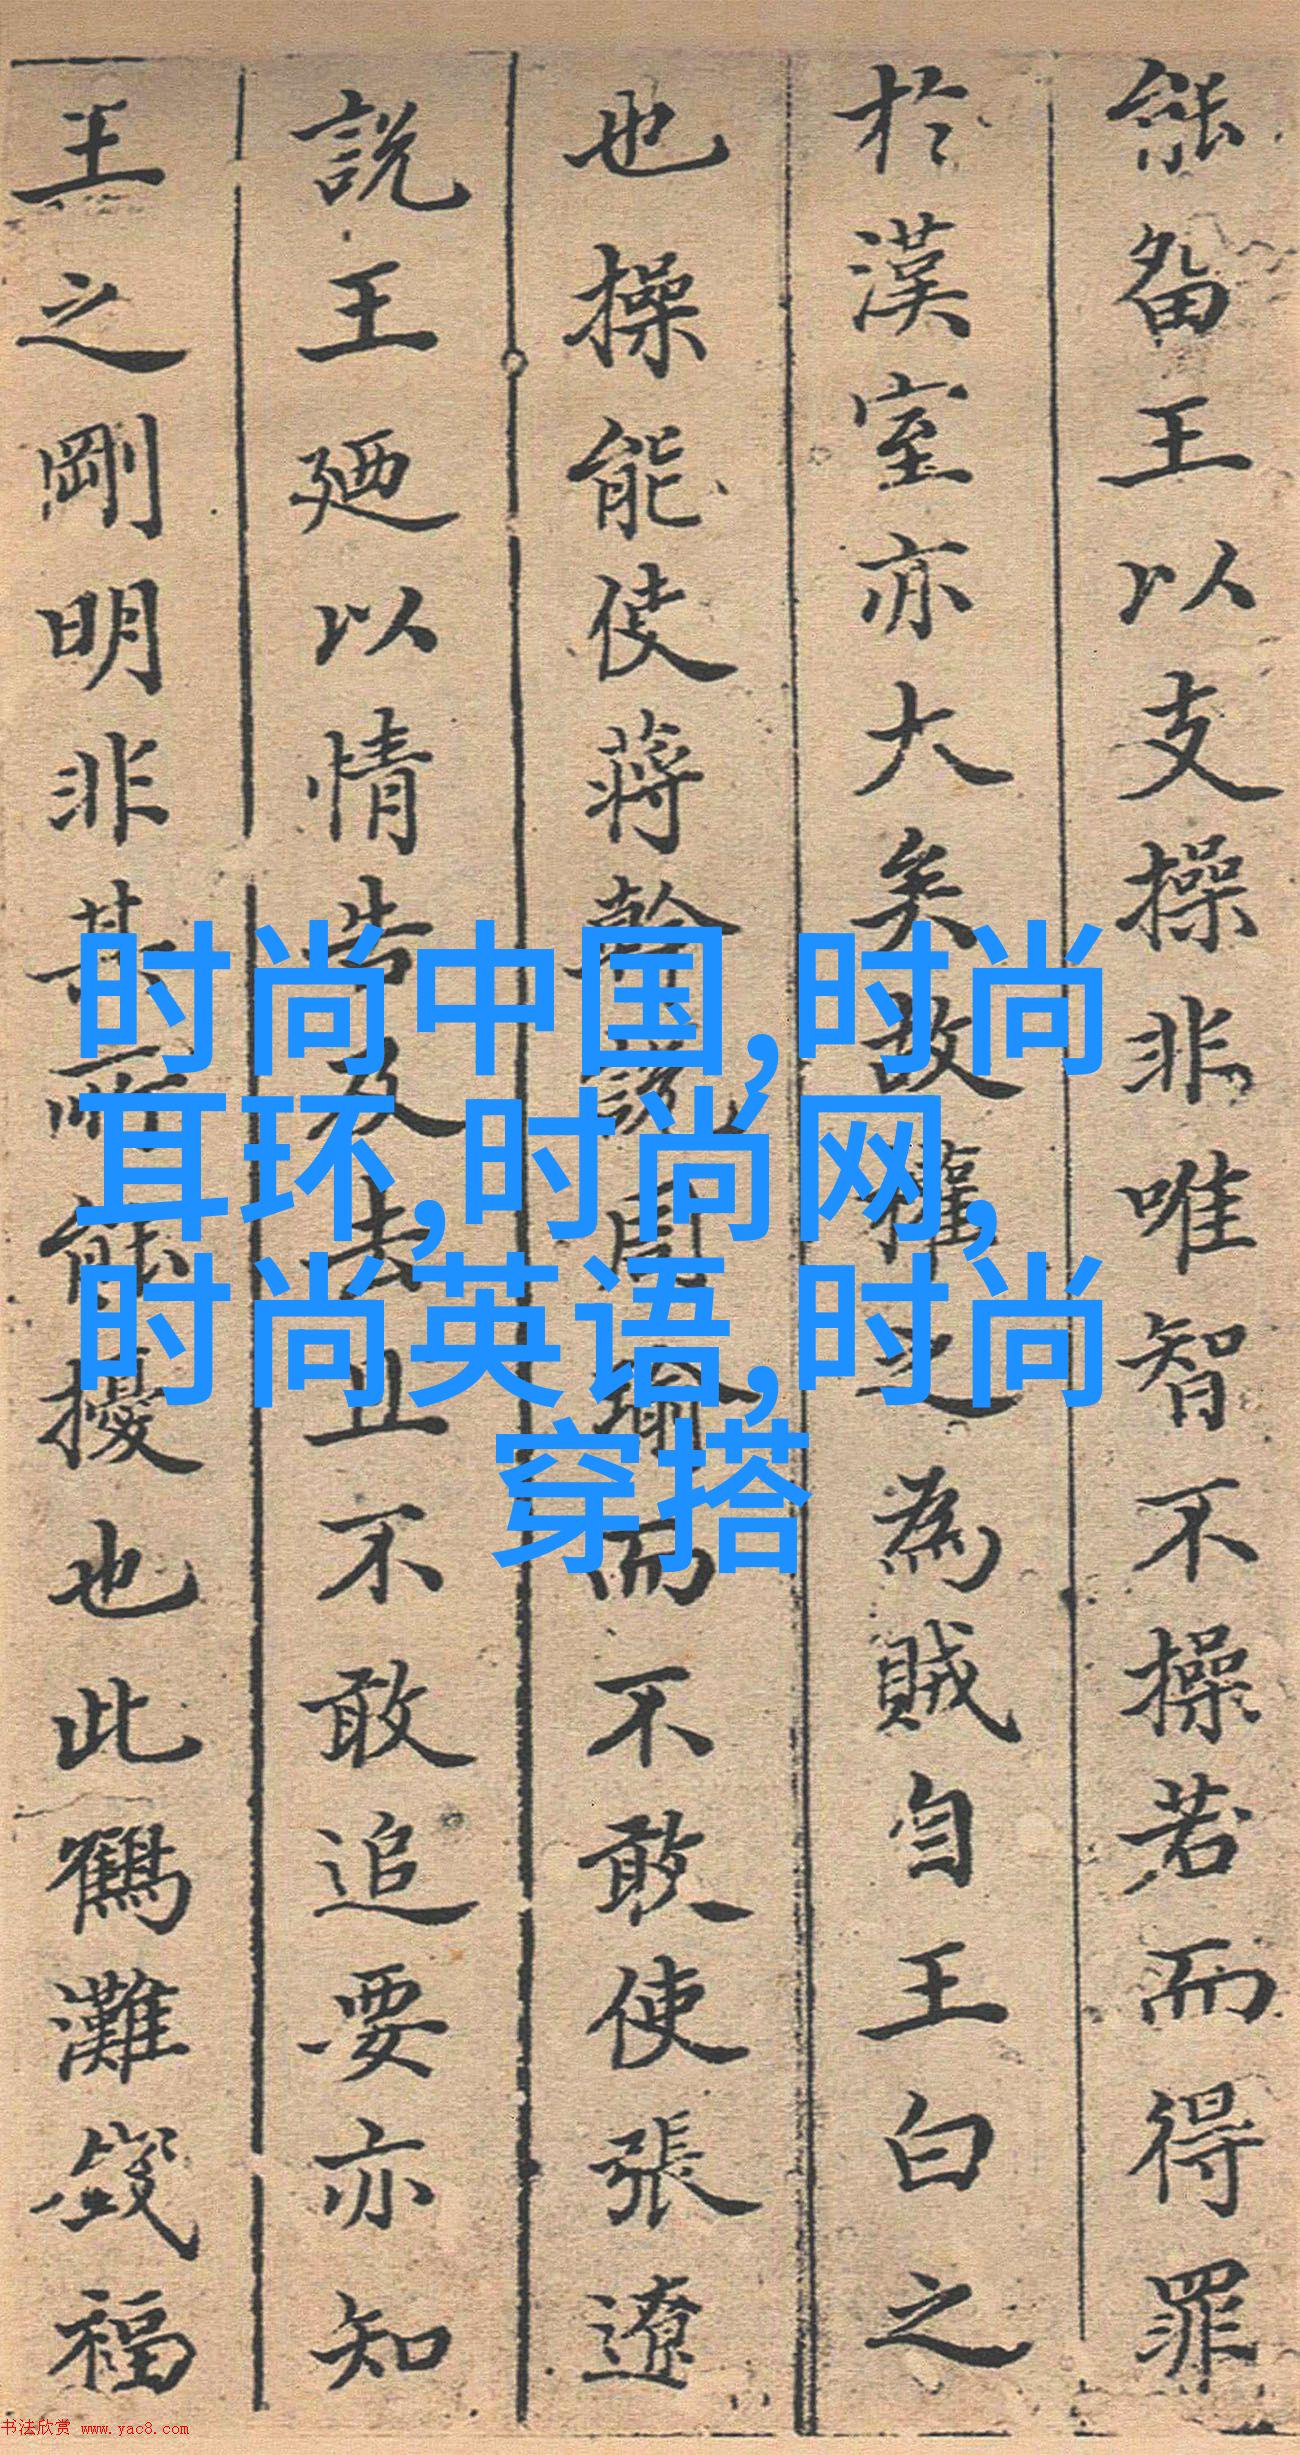 能留王以支操非唯智不操若而得罪
於漢室亦大矣故權之為賊自王白之
也操能使蔣幹說周瑜而不敢使張遼
說王廼以情告及去且不敢追要亦知
王之剛明非其所能擾也此鶴灘福
时尚中国,时尚
耳环,时尚网,
时尚英语,时尚
穿搭
书法欣赏 www.yac8.com